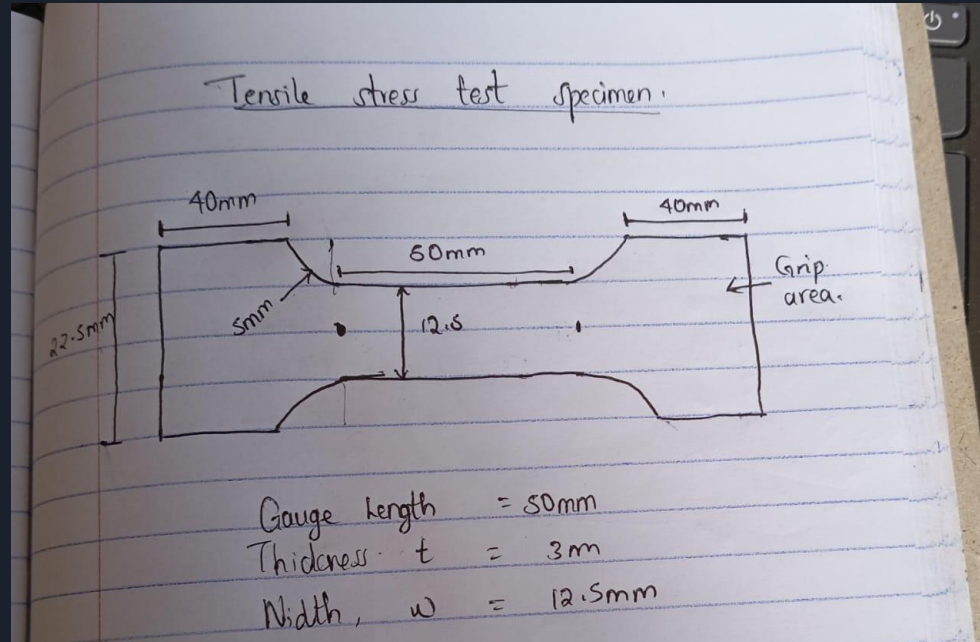 Tensile stress test specimen.
40mm
40mm
50mm
Grip
area.
5mm
12.5
22.5mm
Gauge Length = 50mm
Thickness t = 3m
Width, w = 12.5mm